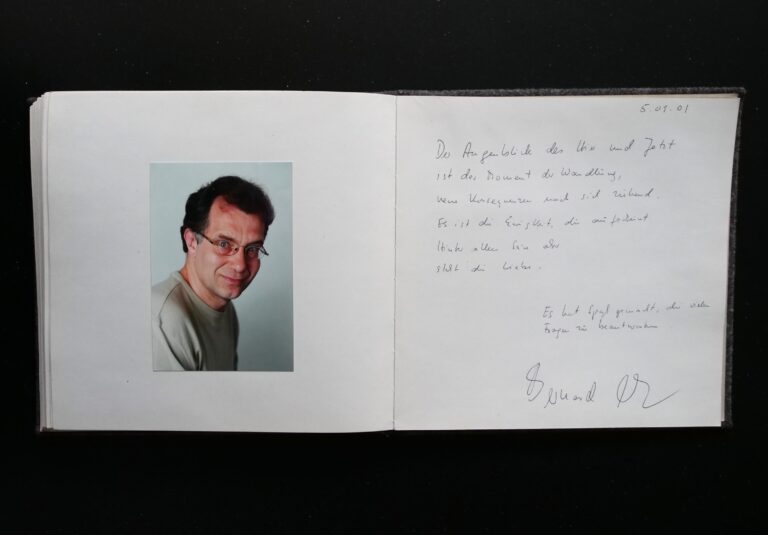 5.01.01
Der Augenblick des Hier und Jetzt
ist der Moment der Wandlung,
neue Konsequenzen nach sich ziehend.
Es ist die Ewigkeit, die aufscheint
Hinter allem aber
steht die Liebe.
Es hat Spaß gemacht, die vielen
Fragen zu beantworten
Bernard